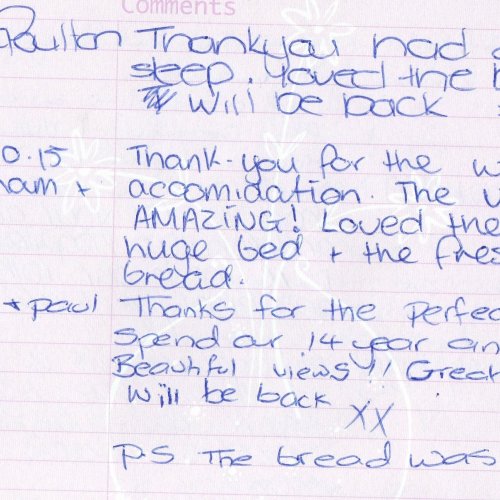 Comments
Poulton Thankyou had
sleep. Loved the
will be back
0.15 Thank-you for the w
ham + accomidation. The v
AMAZING! Loved the
huge bed + the fres
bread.
+ paul Thanks for the perfec
Spend our 14 year an
Beautiful views!! Great
will be back XX
P.S The bread was